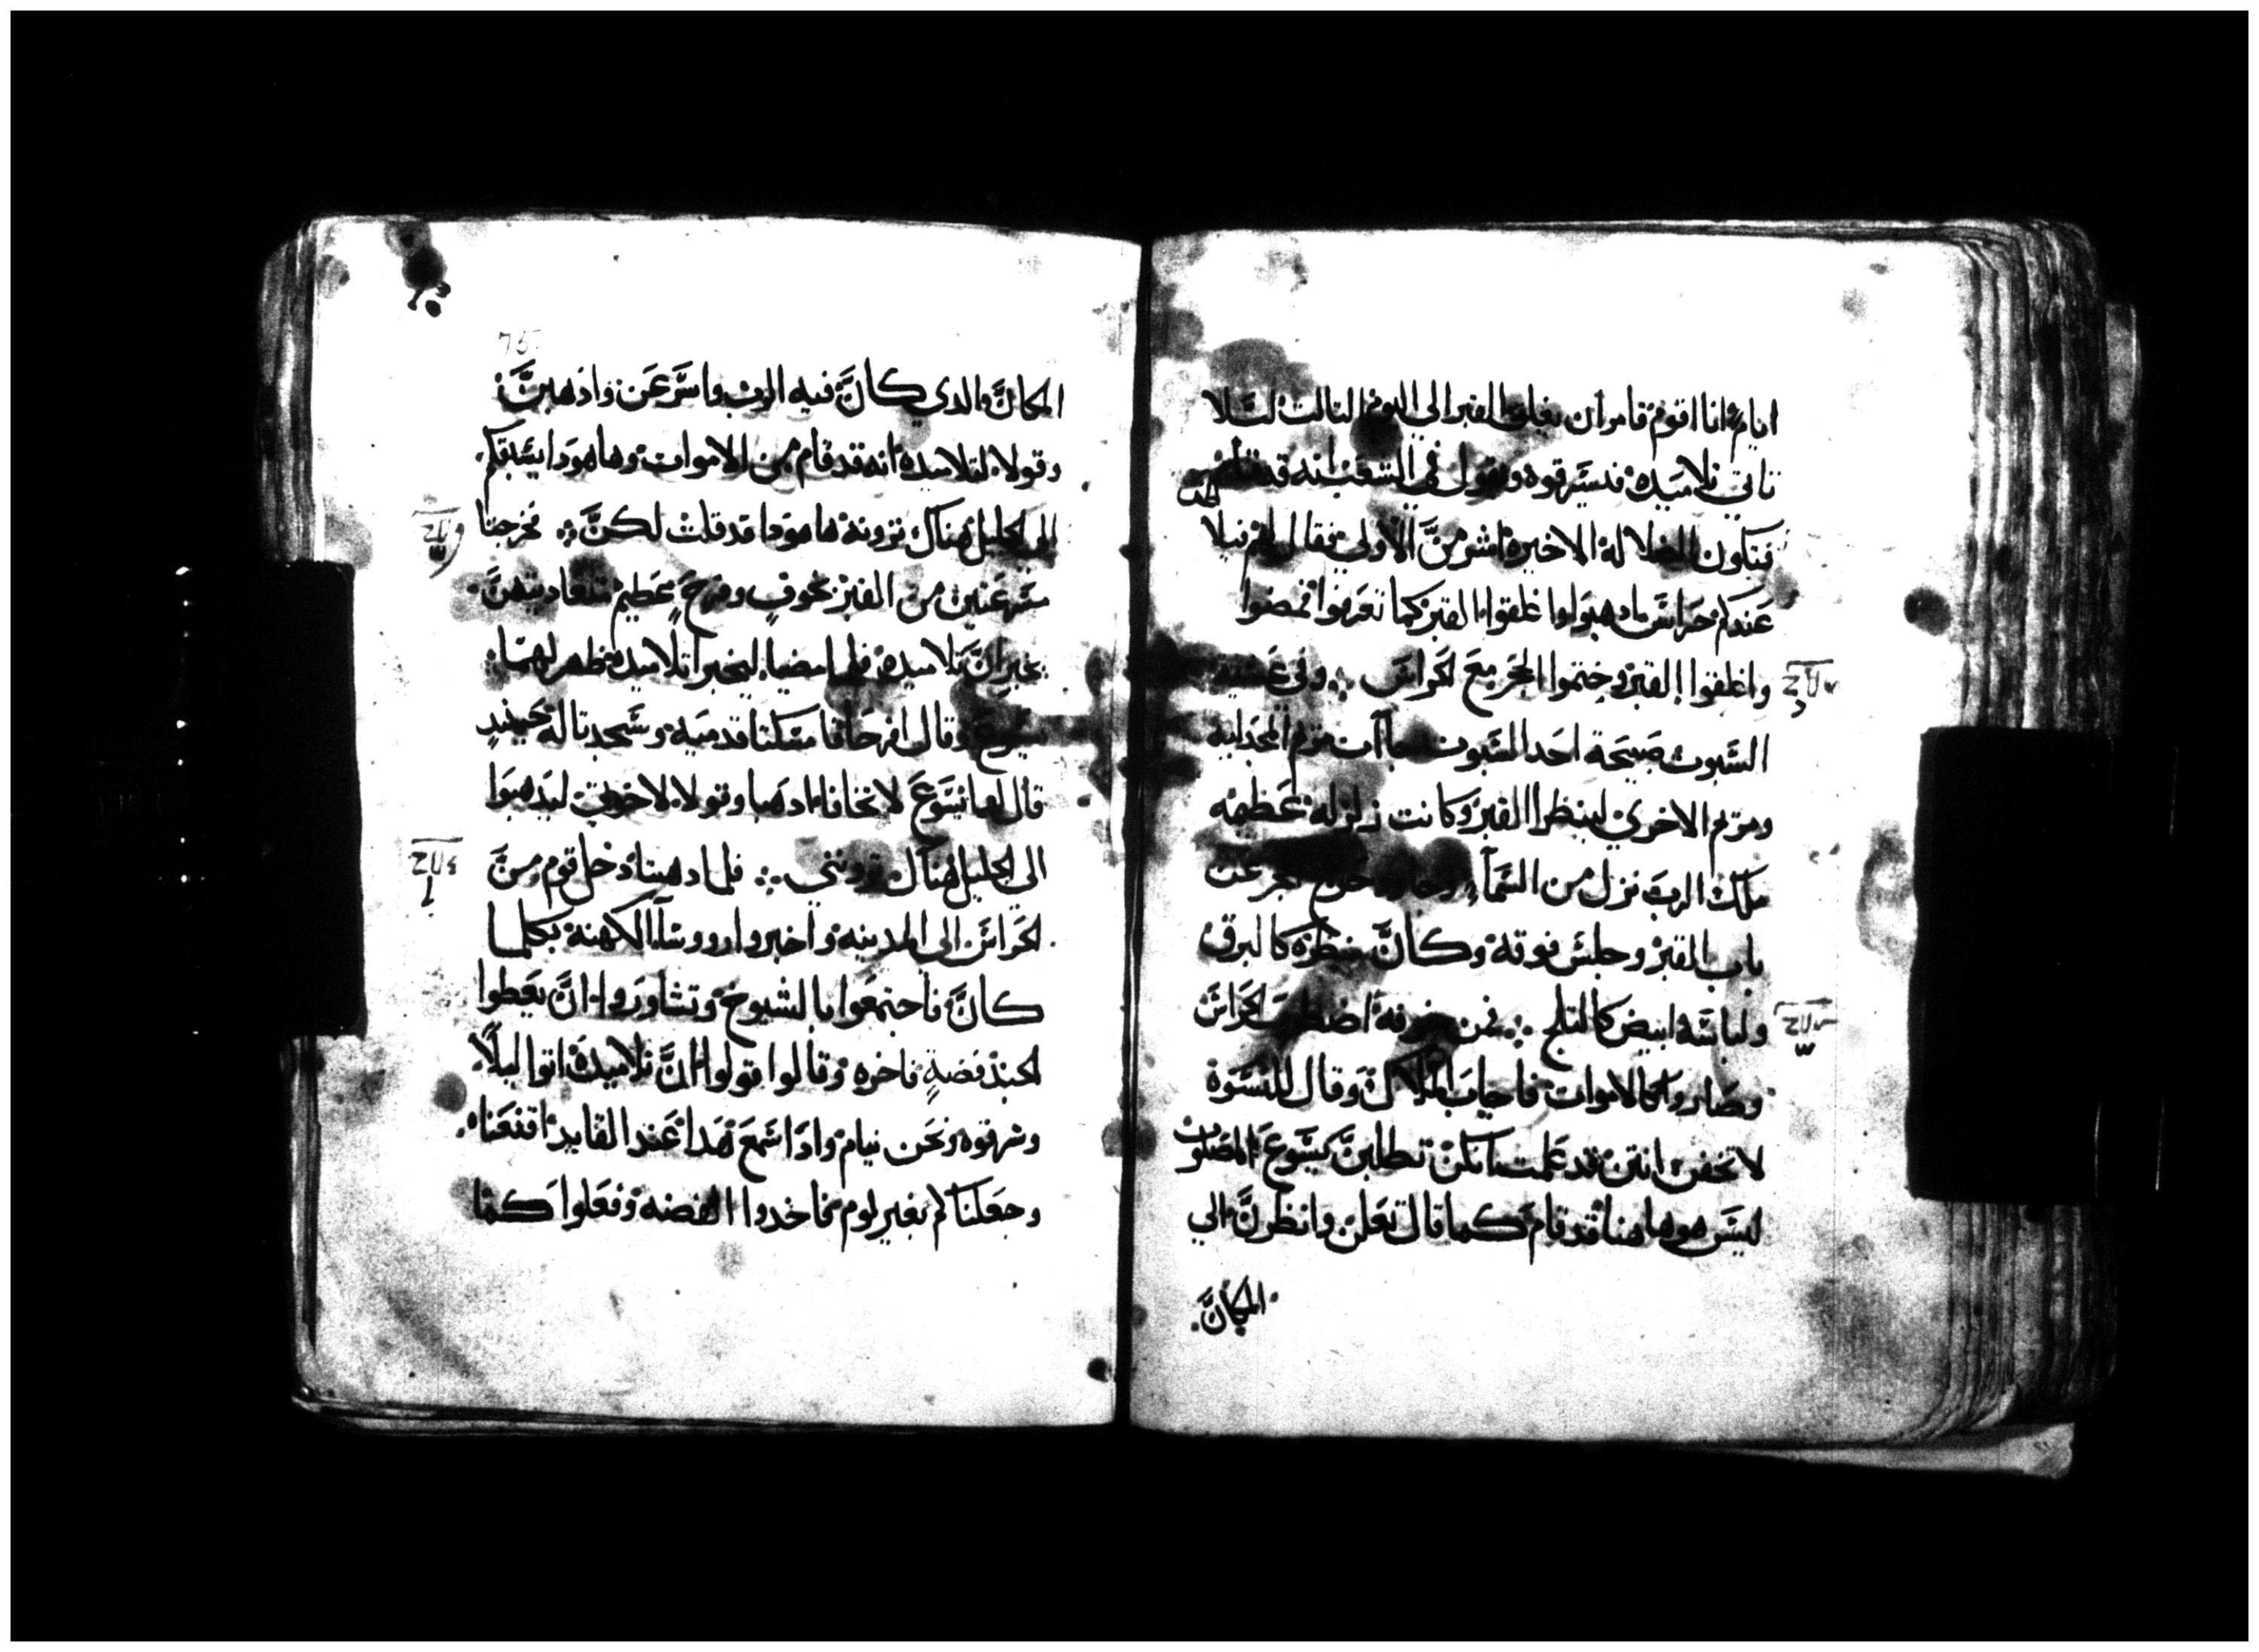 ايام انا اقوم فامر ان يغلق القبر الي اليوم التالت ليلا
تاتي تلاميده فيسرقوه ويقول في الشعب انه قد قام
فتكون الضلالة الاخيره اشر من الاولي فقال لهم فيلا طس
عندكم حراس ادهبوا واغلقوا القبر كما تعرفوا فمضوا
واغلقوا القبر وختموا الحجر مع الحراس وفي عشية
السبوت صبيحة احد السبوت جاات مريم المجدلية
ومريم الاخري لينظرا القبر وكانت زلزله عظيمه
ملاك الرب نزل من السمآء الحجر عن
باب القبر وجلس فوقه وكان منظره كالبرق
ولباسه ابيض كالتلج فمن خوفه اضطرب الحراس
وصاروا كالاموات فاجاب الملاك وقال للنسوة
لا تخفن انتن قد علمت انكن تطلبن يسوع المصلوب
ليس هو هاهنا قد قام كما قال تعلن وانظرن الي
المكان
75
المكان الدي كان فيه الرب واسرعن وادهبن
وقولا لتلاميده انه قد قام من الاموات وها هودا يسبقكم
الي الجليل هناك ترونه ها هودا قد قلت لكن فخرجتا
مسرعتين من القبر بخوف وفرح عظيم
يخبران تلاميده فلما مضيا ليخبرا تلاميده ظهر لهما
يسوع وقال افرحا فامسكتا قدميه وسجدتا له حينيد
قال لهما يسوع لا تخافا ادهبا وقولا لاخوتي ليدهبوا
الي الجليل هناك يرونني فلما دهبتا دخل قوم من
الحراس الي المدينه واخبروا رووسآ الكهنة بكلما
كان فاجتمعوا بالشيوخ وتشاوروا ان يعطوا
الجند فضة فاخره وقالوا قولوا ان تلاميده اتوا ليلا
وسرقوه ونحن نيام وادا سمع هدا عند القايد اقنعناه
وجعلناكم بغير لوم فاخدوا الفضه وفعلوا كما